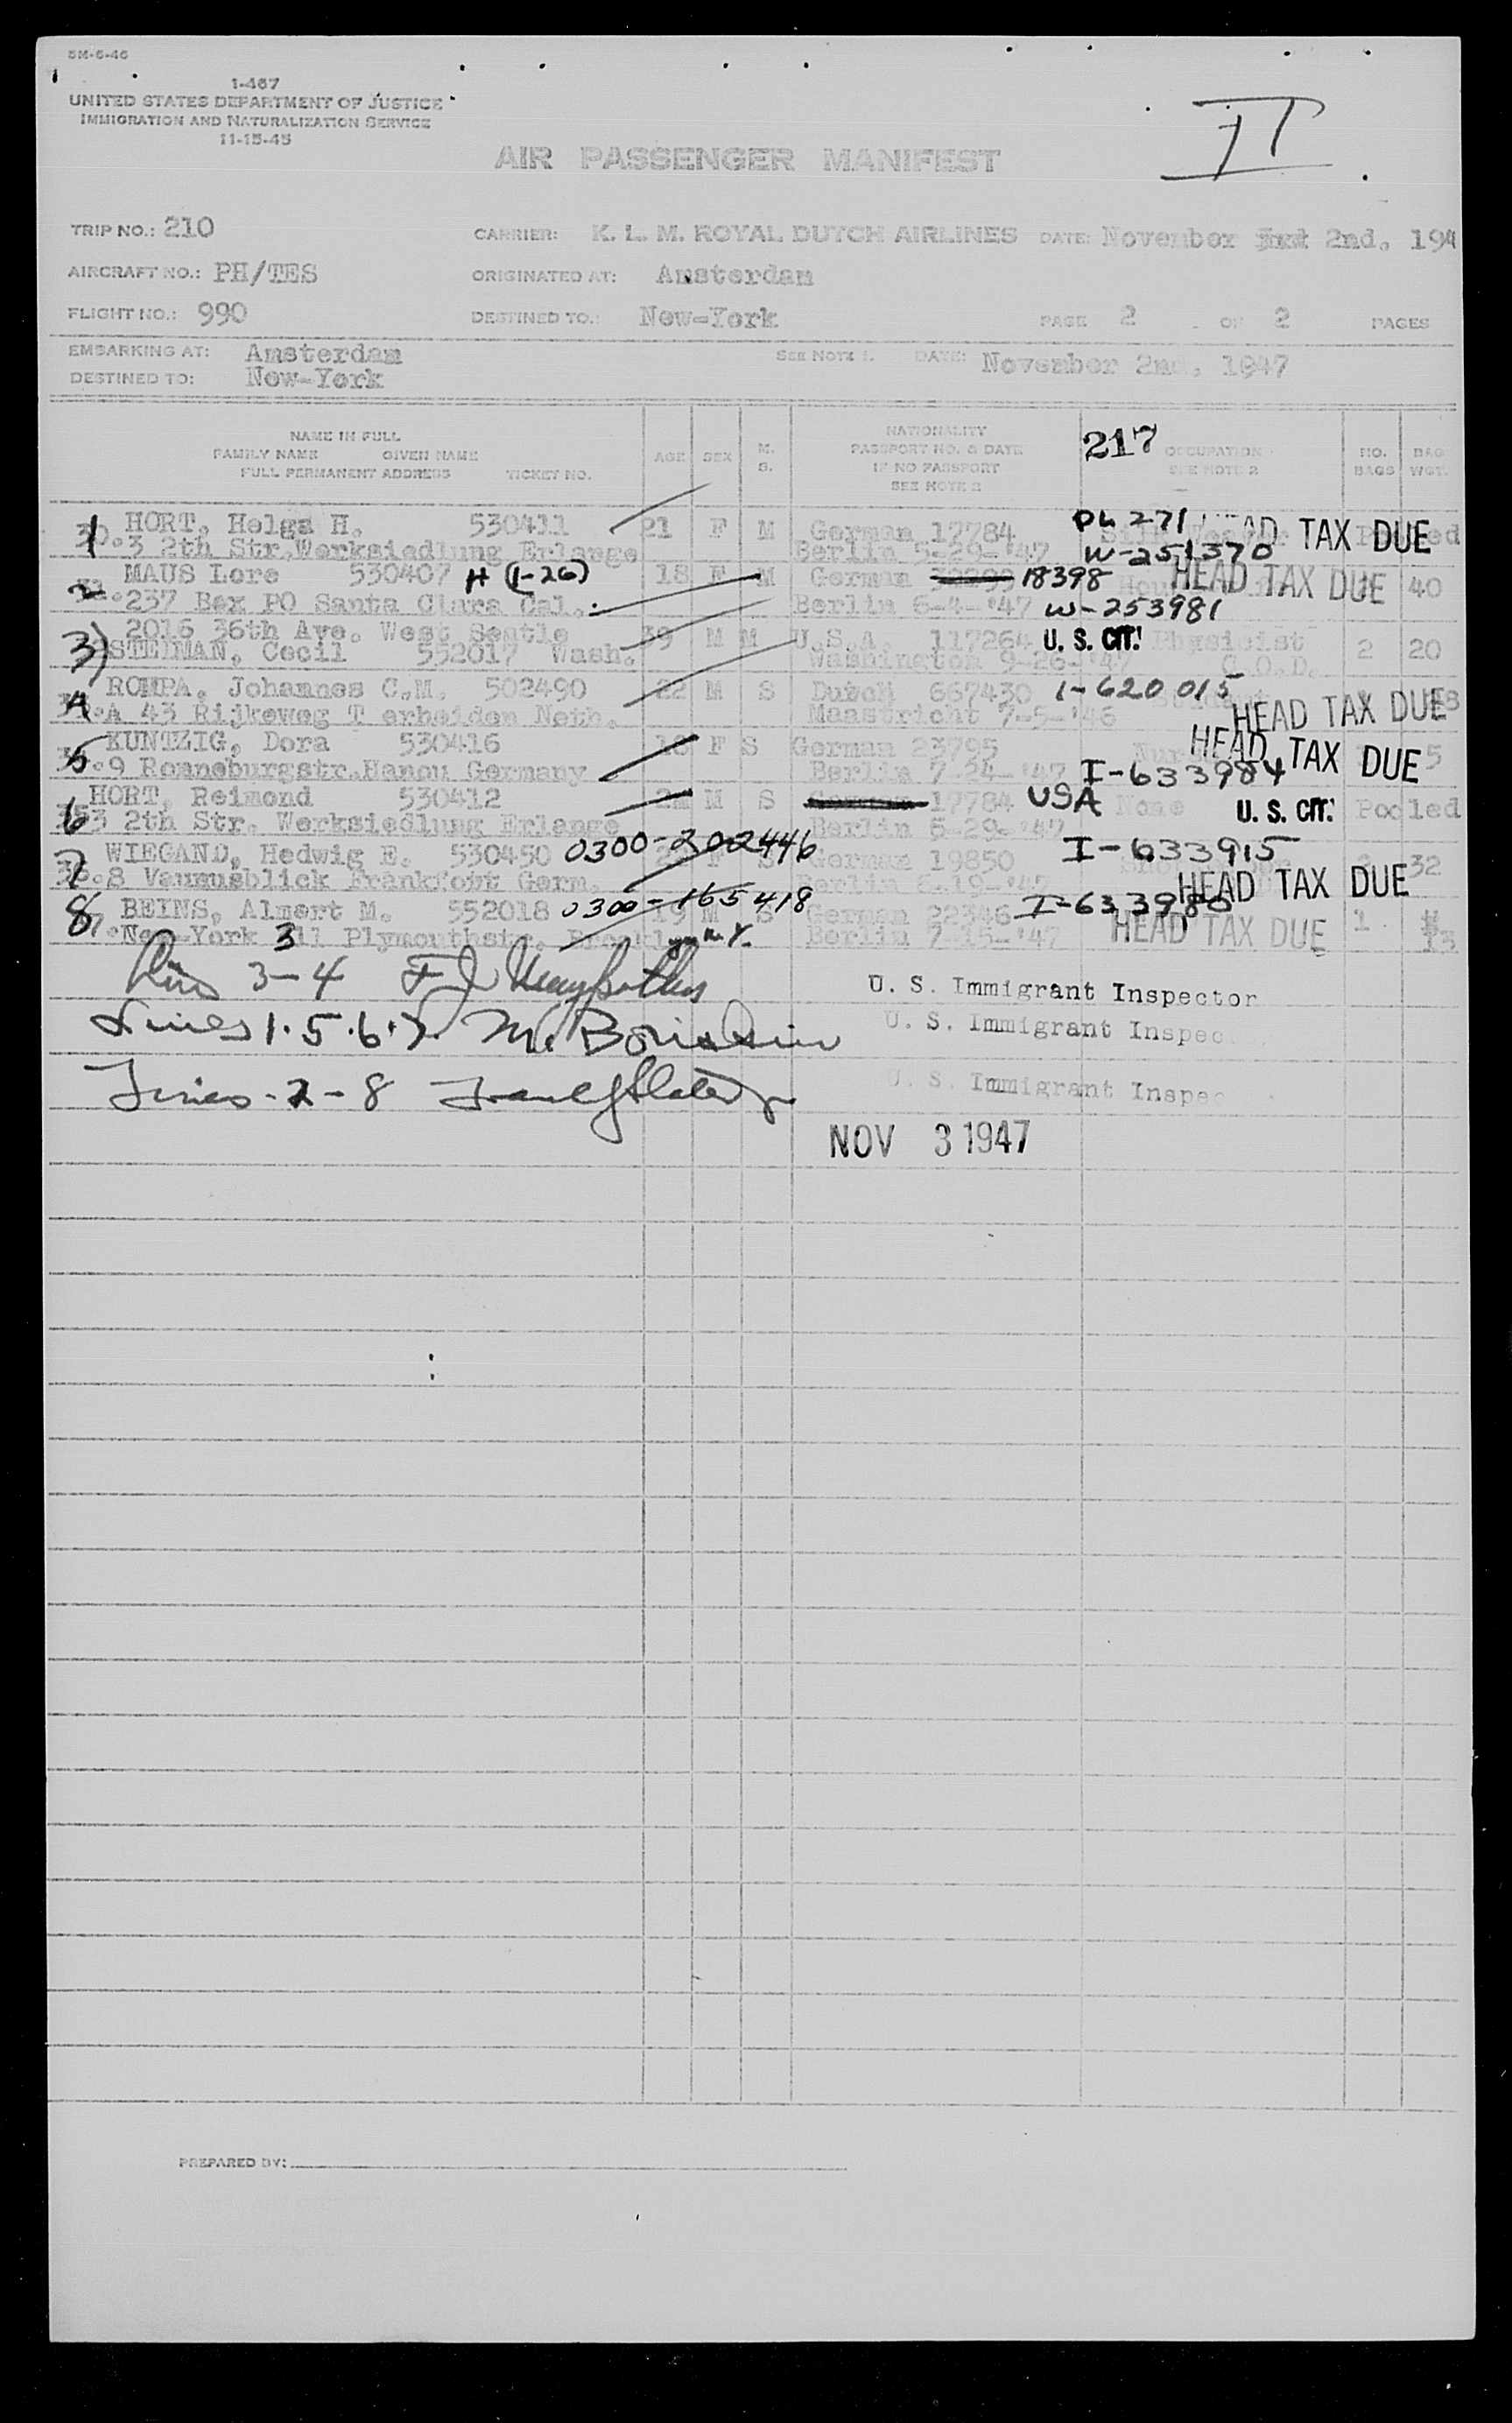 5M-6-46
I-467
UNITED STATES DEPARTMENT OF JUSTICE
IMMIGRATION AND NATURALIZATION SERVICE
11-15-45
II
AIR PASSENGER MANIFEST
TRIP NO.: 210 CARRIER: K. L. M. ROYAL DUTCH AIRLINES DATE: November 2nd. 194
AIRCRAFT NO.: PH/TES ORIGINATED AT: Amsterdam
FLIGHT NO.: 990 DESTINED TO.: New-York PAGE 2 OF 2 PAGES
EMBARKING AT: Amsterdam SEE NOTE 1. DATE: November 2nd, 1947
DESTINED TO: New-York
NAME IN FULL
FAMILY NAME GIVEN NAME
FULL PERMANENT ADDRESS TICKET NO.
AGE SEX M. S.
NATIONALITY
PASSPORT NO. & DATE
IF NO PASSPORT
SEE NOTE 2
217 OCCUPATION
SEE NOTE 2
NO. BAGS BAG WGT.
1 HORT, Helga H. 530411 21 F M German 17784 HEAD TAX DUE
30. 3 2th Str. Werksiedlung Erlange Berlin 5-29-'47 W-251370
2 MAUS Lore 530407 H (1-26) 18 F M German 18398 HEAD TAX DUE 40
237 Box PO Santa Clara Cal. Berlin 6-4-'47 W-253981
2016 36th Ave. West Seatle 39 M M U.S.A. 117264 U. S. CIT. Physicist 2 20
3) STEDMAN, Cecil 552017 Wash. Washington 9-26-'47 C.O.D.
4 ROMPA, Johannes C.M. 502490 22 M S Dutch 667430 1-620015
A 43 Rijkeweg T erheiden Neth. Maastricht 7-5-'46 HEAD TAX DUE
5 KUNTZIG, Dora 530416 18 F S German 23795 HEAD TAX DUE 5
9 Ronneburgstr. Hanau Germany Berlin 7-24-'47 I-633984
6 HORT, Reimond 530412 M S German 17784 USA None U. S. CIT. Pooled
3 2th Str. Werksiedlung Erlange Berlin 5-29-'47
7 WIEGAND, Hedwig E. 530450 0300-202446 F S German 19850 I-633915 32
8 Vaumusblick Frankfort Germ. Berlin 6-19-'47 HEAD TAX DUE
8 BEINS, Almert M. 552018 0300-165418 19 M S German 22346 I-633980
New-York 311 Plymouthstr. Brooklyn N.Y. Berlin 7-15-'47 HEAD TAX DUE 1 13
3-4 U. S. Immigrant Inspector
Lines 1.5.6.7. U. S. Immigrant Inspec
Lines-2-8 U. S. Immigrant Inspec
NOV 3 1947
PREPARED BY: